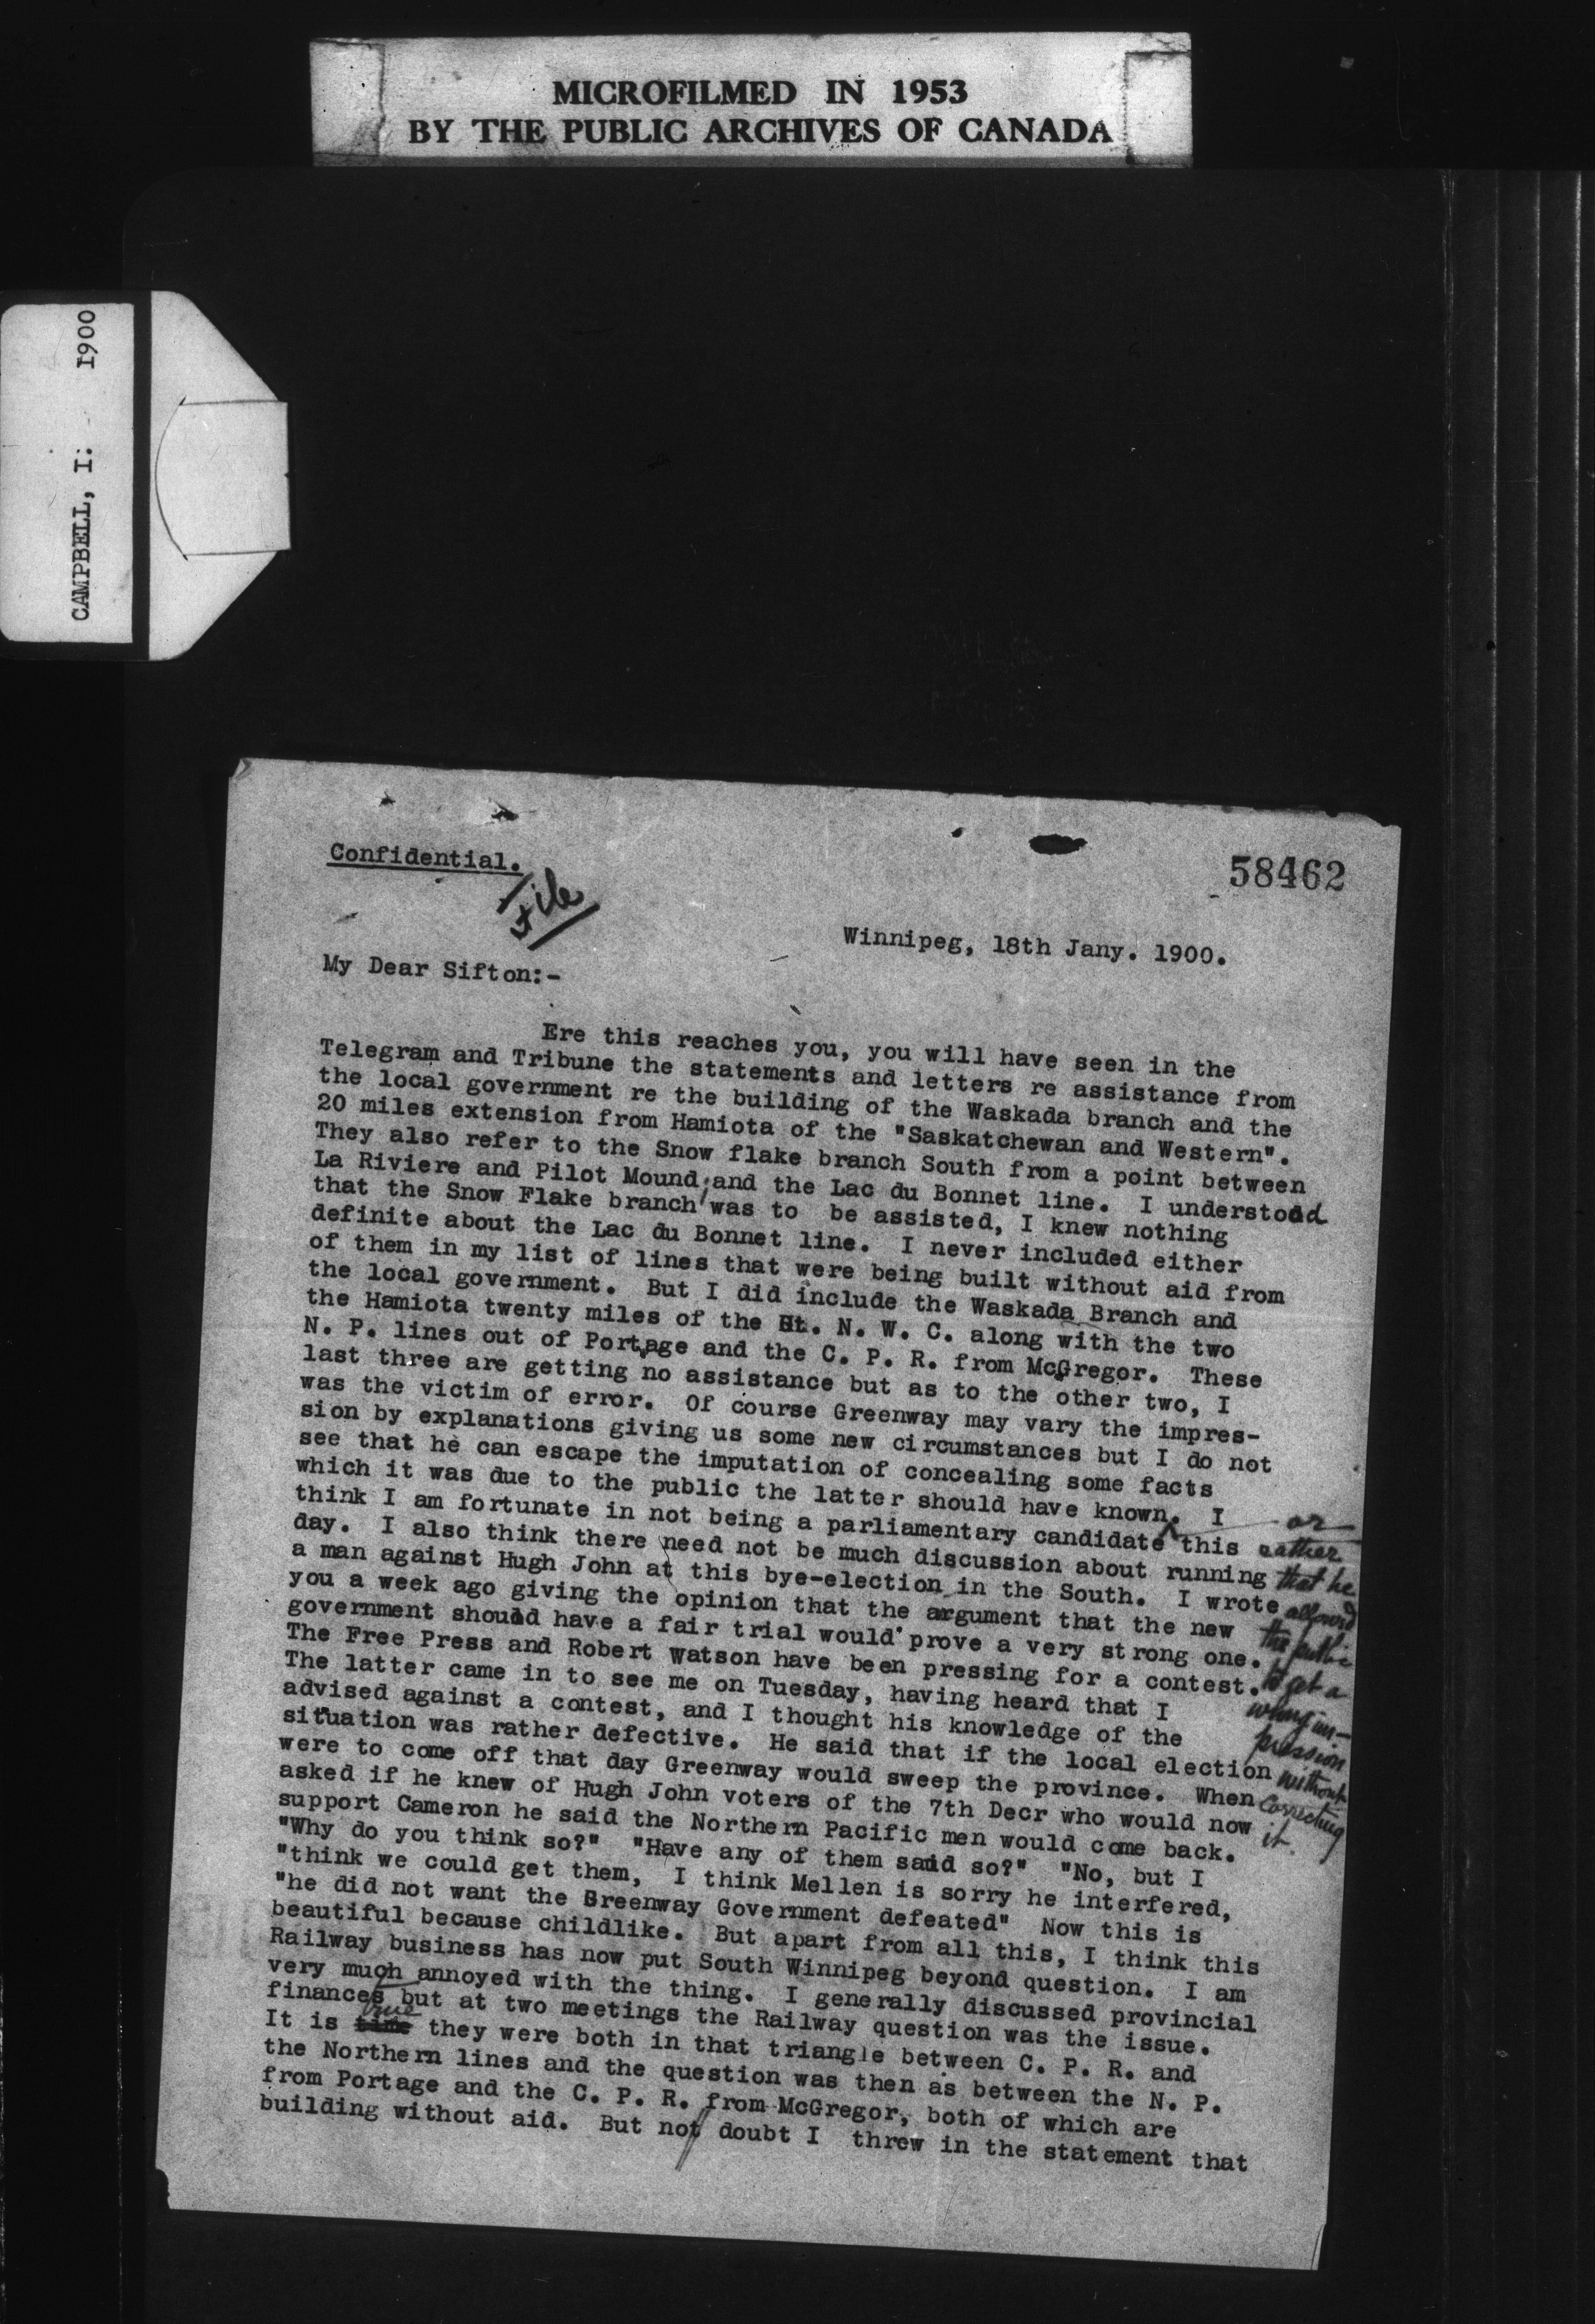 MICROFILMED IN 1953
BY THE PUBLIC ARCHIVES OF CANADA
CAMPBELL, I: 1900
Confidential.
File
58462
Winnipeg, 18th Jany. 1900.
My Dear Sifton:-
Ere this reaches you, you will have seen in the
Telegram and Tribune the statements and letters re assistance from
the local government re the building of the Waskada branch and the
20 miles extension from Hamiota of the "Saskatchewan and Western".
They also refer to the Snow flake branch South from a point between
La Riviere and Pilot Mound, and the Lac du Bonnet line. I understood
that the Snow Flake branch was to be assisted, I knew nothing
definite about the Lac du Bonnet line. I never included either
of them in my list of lines that were being built without aid from
the local government. But I did include the Waskada Branch and
the Hamiota twenty miles of the St. N. W. C. along with the two
N. P. lines out of Portage and the C. P. R. from McGregor. These
last three are getting no assistance but as to the other two, I
was the victim of error. Of course Greenway may vary the impres-
sion by explanations giving us some new circumstances but I do not
see that he can escape the imputation of concealing some facts
which it was due to the public the latter should have known. I
think I am fortunate in not being a parliamentary candidate this
day. I also think there need not be much discussion about running
a man against Hugh John at this bye-election in the South. I wrote
you a week ago giving the opinion that the argument that the new
government should have a fair trial would prove a very strong one.
The Free Press and Robert Watson have been pressing for a contest.
The latter came in to see me on Tuesday, having heard that I
advised against a contest, and I thought his knowledge of the
situation was rather defective. He said that if the local election
were to come off that day Greenway would sweep the province. When
asked if he knew of Hugh John voters of the 7th Decr who would now
support Cameron he said the Northern Pacific men would come back.
"Why do you think so?" "Have any of them said so?" "No, but I
"think we could get them, I think Mellen is sorry he interfered,
"he did not want the Greenway Government defeated" Now this is
beautiful because childlike. But apart from all this, I think this
Railway business has now put South Winnipeg beyond question. I am
very much annoyed with the thing. I generally discussed provincial
finances but at two meetings the Railway question was the issue.
It is time true they were both in that triangle between C. P. R. and
the Northern lines and the question was then as between the N. P.
from Portage and the C. P. R. from McGregor, both of which are
building without aid. But not doubt I threw in the statement that
or
rather
that he
allowed
the public
to get a
wrong im-
pression
without
correcting
it.